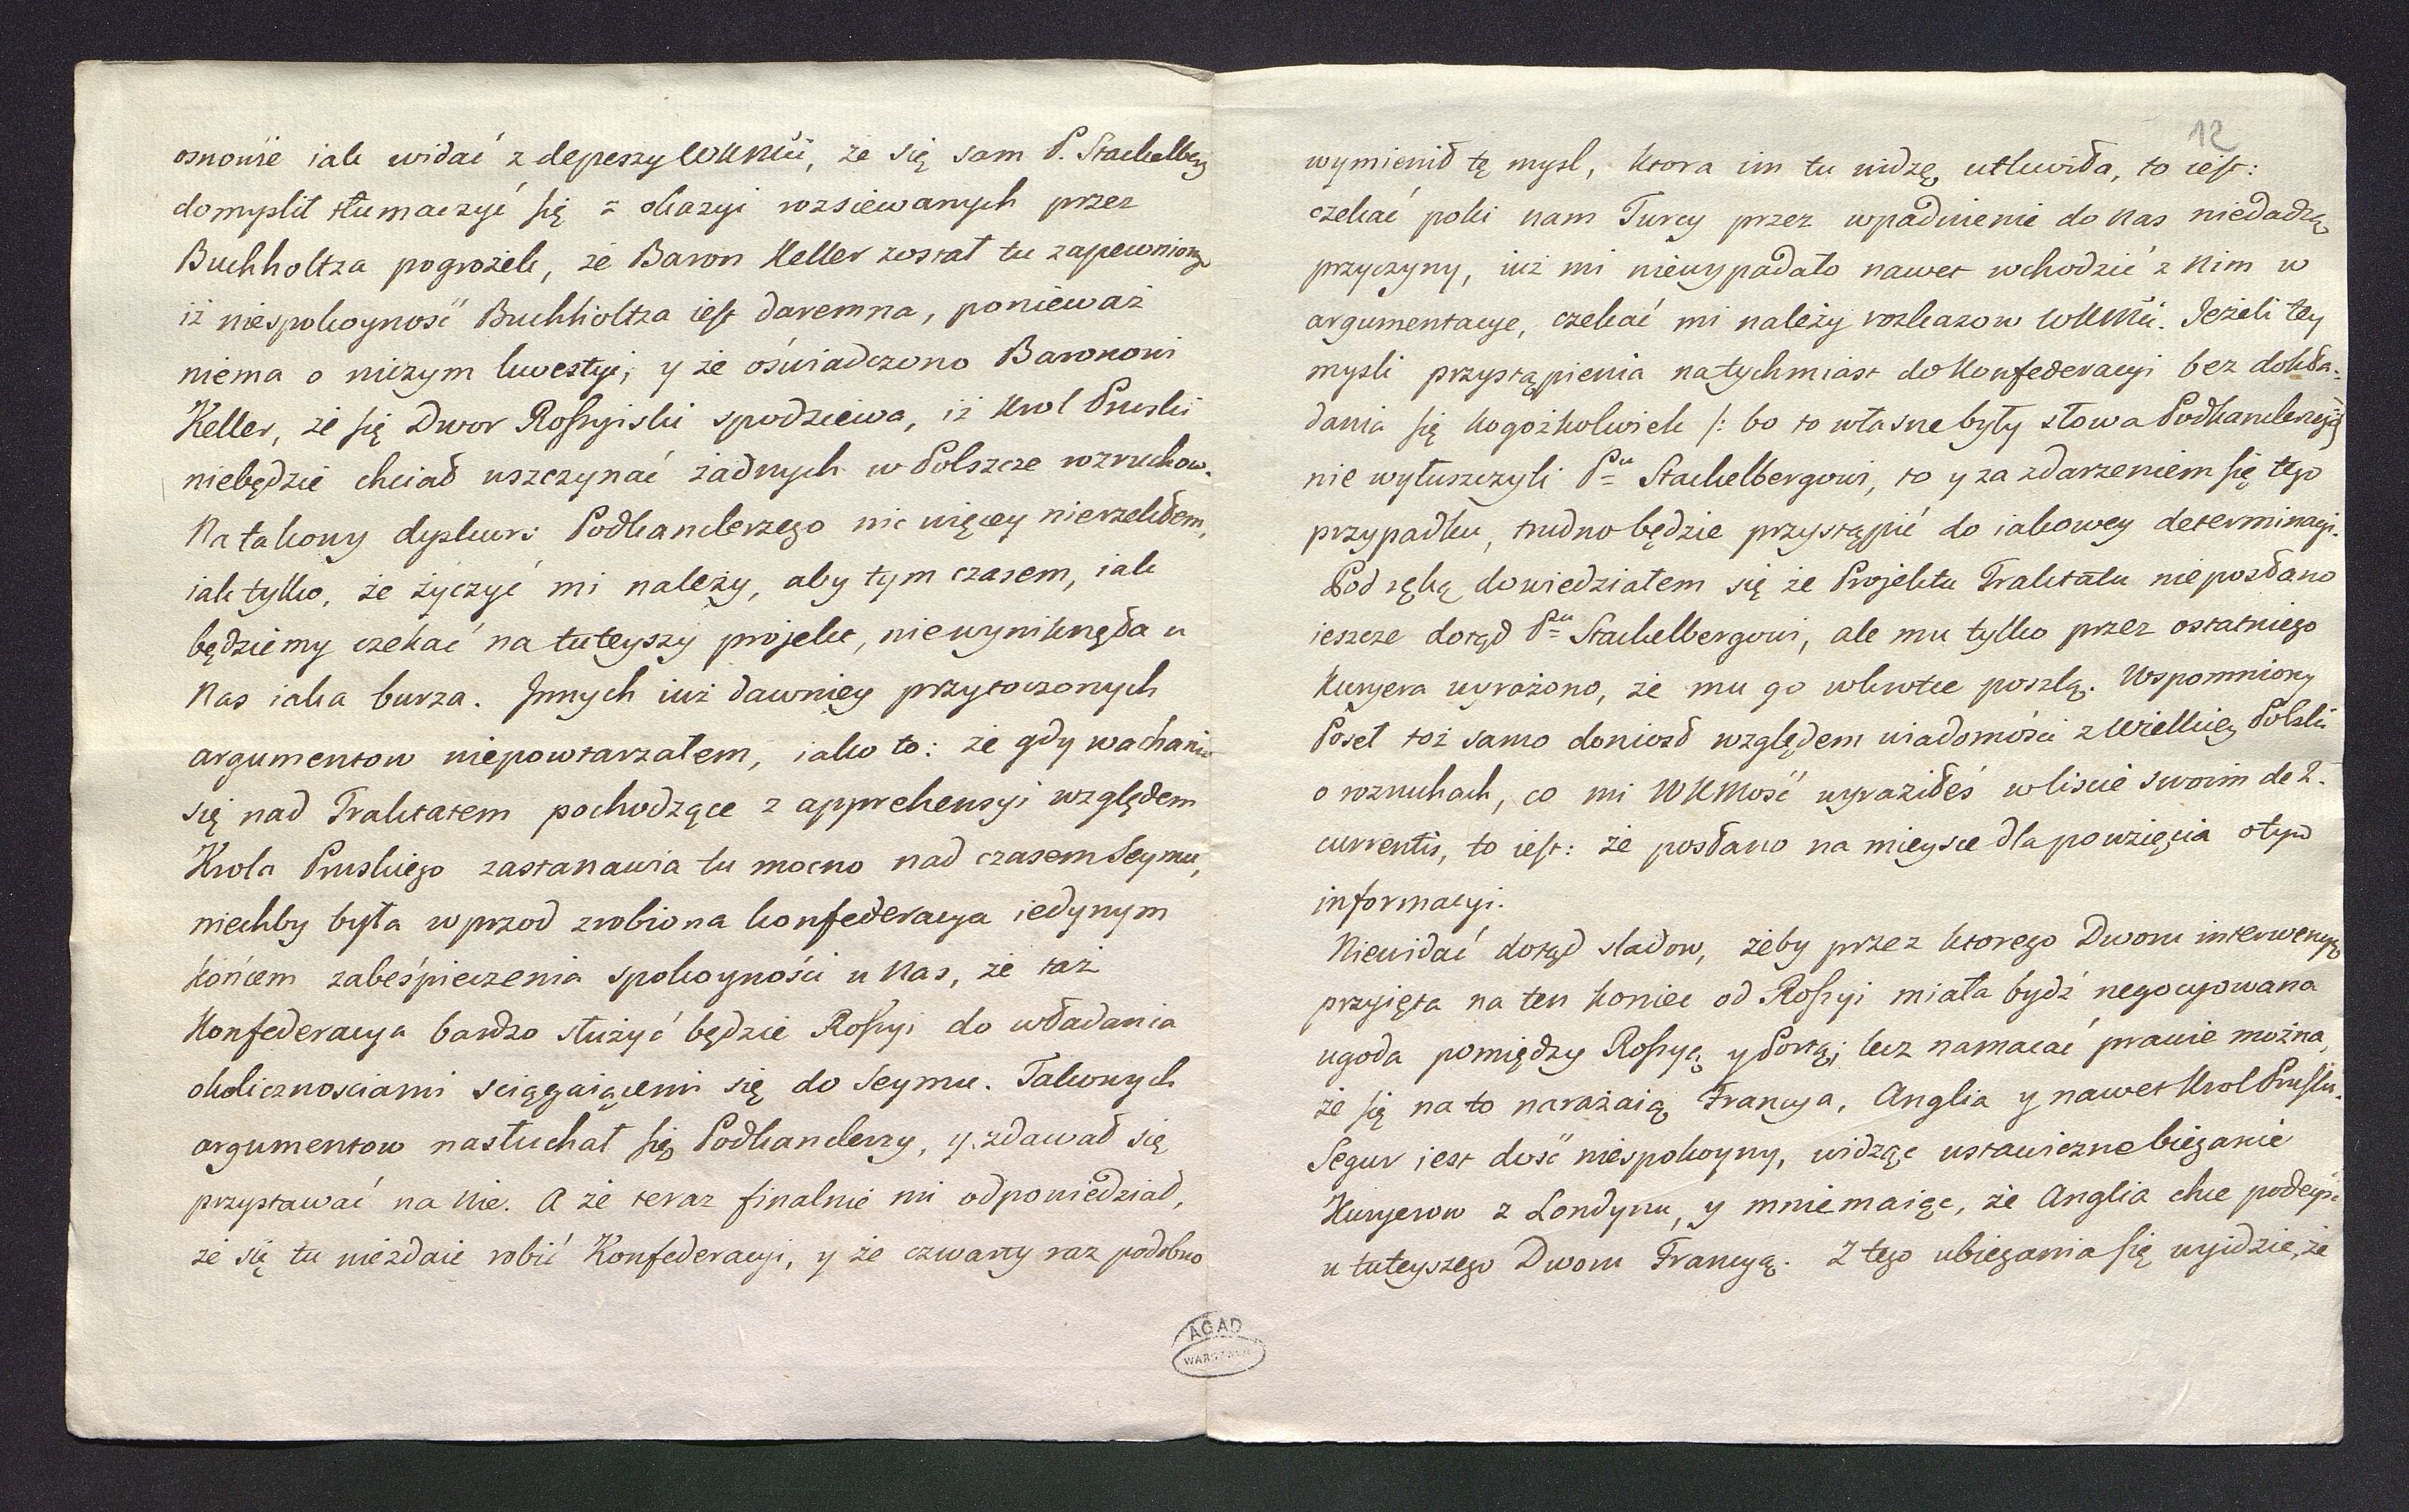 osnowie iak widać z depeszy WKMci, że się sam P. Stackelberg
domyslił tłumaczyć się z okazyi rozsiewanych przez
Buchholtza pogrożek, że Baron Keller został tu zapewniony
iż niespokoyność Buchholtza iest daremna, ponieważ
niema o niczym kwestyi, y że oświadczono Baronowi
Keller, że się Dwor Rossyiski spodziewa, iż Krol Pruski
niebędzie chciał wszczynać żadnych w Polszcze rozruchow.
Na takowy dyskurs Podkanclerzego nic więcey nierzekłem,
iak tylko, że życzyć mi należy, aby tym czasem, iak
będziemy czekać na tuteyszy projekt, niewyniknęła u
Nas iaka burza. Innych iuż dawniey przytoczonych
argumentow niepowtarzałem, iako to: że gdy wachanie
się nad Traktatem pochodzące z apprehensyi względem
Krola Pruskiego zastanawia tu mocno nad czasem Seymu,
niechby była wprzod zrobiona konfederacya iedynym
końcem zabeśpieczenia spokoyności u Nas, że taż
Konfederacya bardzo służyć będzie Rossyi do władania
okolicznosciami sciągaiącemi się do Seymu. Takowych
argumentow nasłuchał się Podkanclerzy, y zdawał się
przystawać na Nie. A że teraz finalnie mi odpowiedział,
że się tu niezdaie robić Konfederacyi, y że czwarty raz podobno
12
wymienił tę mysl, ktora im tu widzę utkwiła, to iest:
czekać poki nam Turcy przez wpadnienie do Nas niedadzą
przyczyny, iuż mi niewypadało nawet wchodzić z Nim w
argumentacye, czekać mi należy rozkazow WKMci. Jeżeli tey
mysli przystąpienia natychmiast do Konfederacyi bez dokła=
dania się kogożkolwiek /: bo to własne były słowa Podkanclerzego
nie wyłuszczyli Pu Stackelbergowi, to y za zdarzeniem się tego
przypadku, trudno będzie przystąpić do iakowey determinacyi.
Pod ręką dowiedziałem się że Projektu Traktatu nieposłano
ieszcze dotąd Pu Stackelbergowi, ale mu tylko przez ostatniego
Kuryera wyrażono, że mu go wkrotce poszlą. Wspomniony
Poseł toż samo doniosł względem wiadomości z Wielkiey Polski
o rozruchach, co mi WKMość wyraziłeś w liscie swoim de 2.
currentis, to iest: że posłano na mieysce dla powzięcia o tym
informacyi.
Niewidać dotąd sladow, żeby przez ktorego Dworu interwencyą
przyięta na ten koniec od Rossyi miała bydź negocyowana
ugoda pomiędzy Rossyą y Portą; lecz namacać prawie można,
że się na to narażaią Francya, Anglia y nawet Krol Pruski.
Segur iest dość niespokoyny, widząc ustawiczne bieganie
Kuryerow z Londynu, y mniemaiąc, że Anglia chce podeyść
u tuteyszego Dworu Francyą. Z tego ubiegania się wyidzie, że
AGAD
WARSZAWA